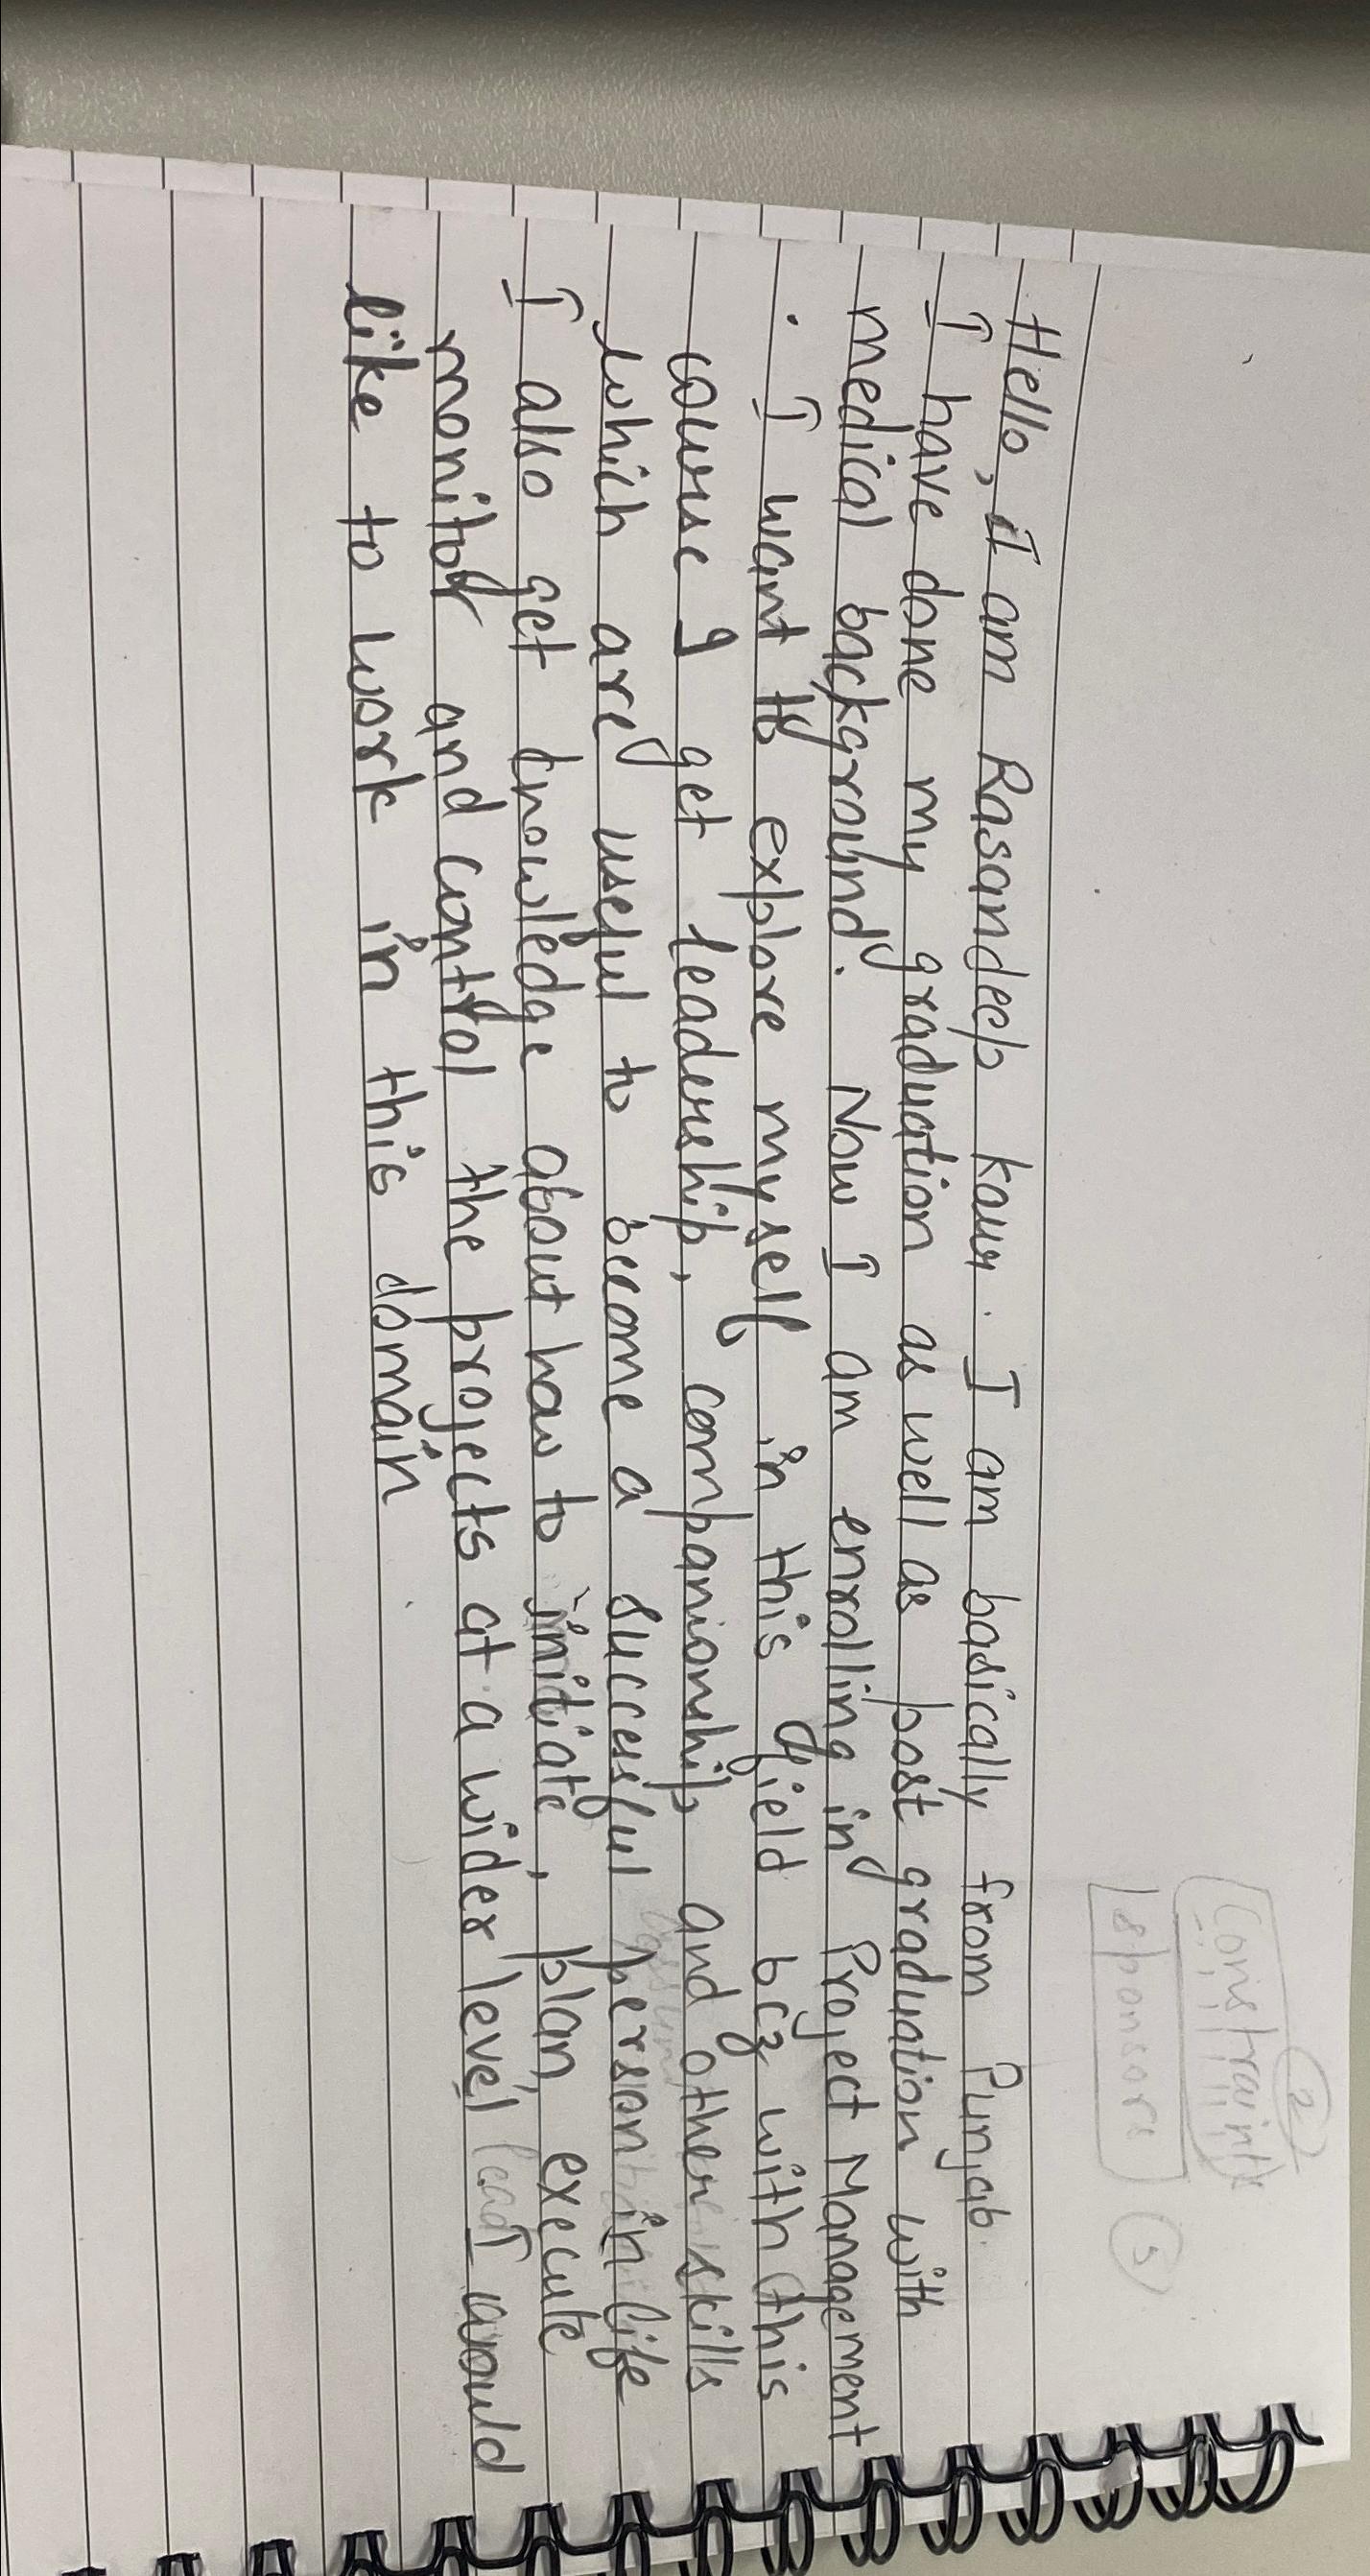 ②
Constraints
sponsors
Hello, I am Rasandeep kaur. I am basically from Punjab.
I have done my graduation as well as post graduation with
medical background. Now I am enrolling in Project Management
. I want to explore myself in this field bcz with this
course I get leadership, companionship and other skills
which are useful to become a successful person in life
I also get knowledge about how to initiate, plan, execute
monitor and control the projects at a wider level I would
like to work in this domain